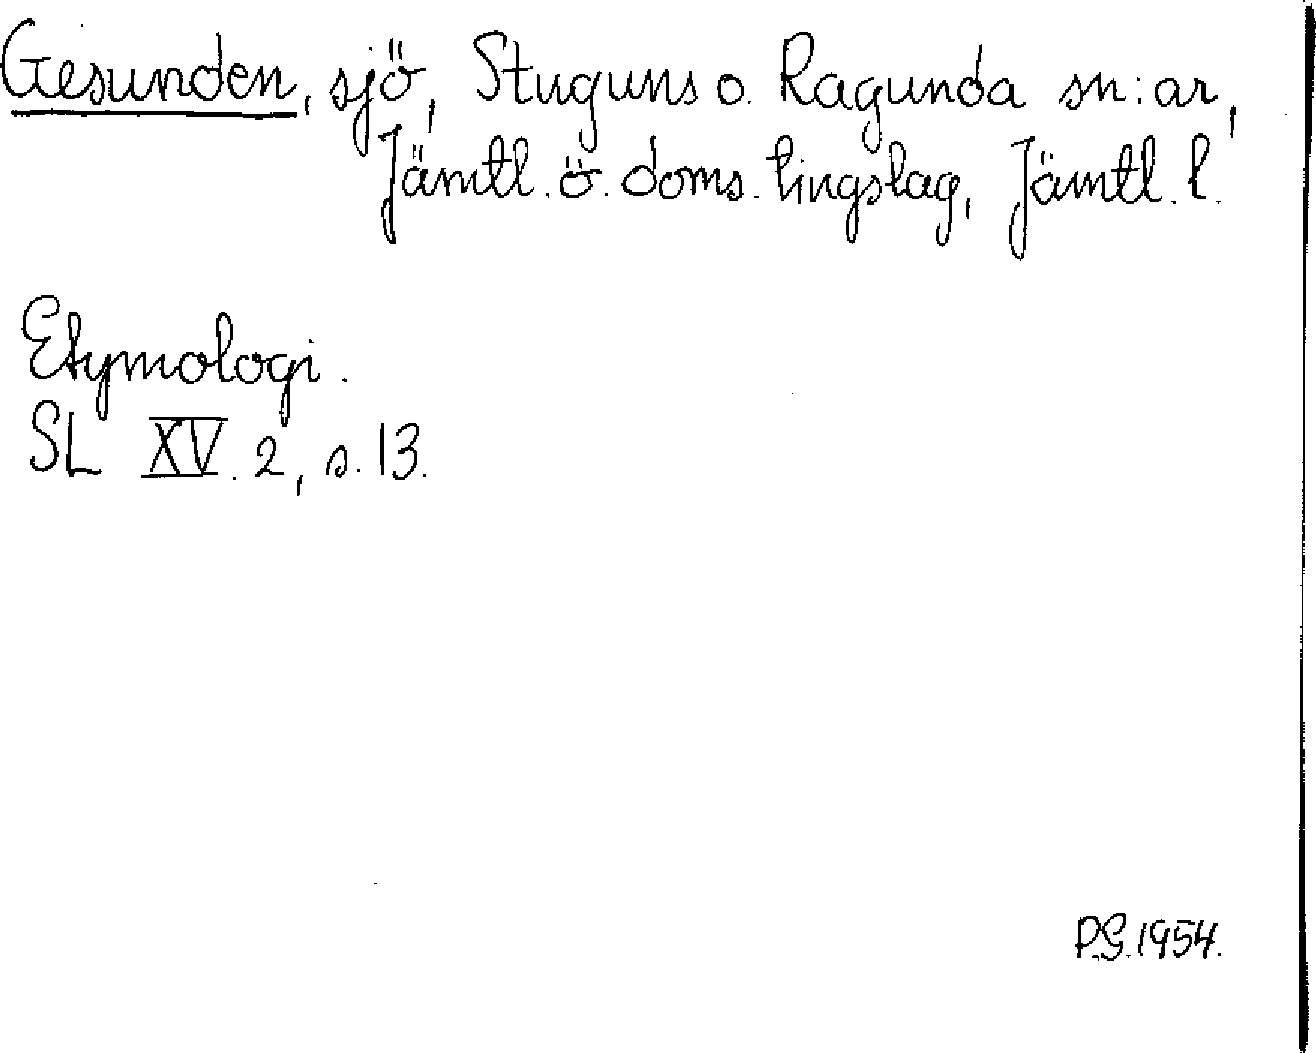 Gesunden, sjö, Stuguns o. Ragunda sn:ar,
Jämtl. ö. doms. tingslag, Jämtl. l.
Etymologi.
SL XV. 2, s. 13.
P.G. 1954.